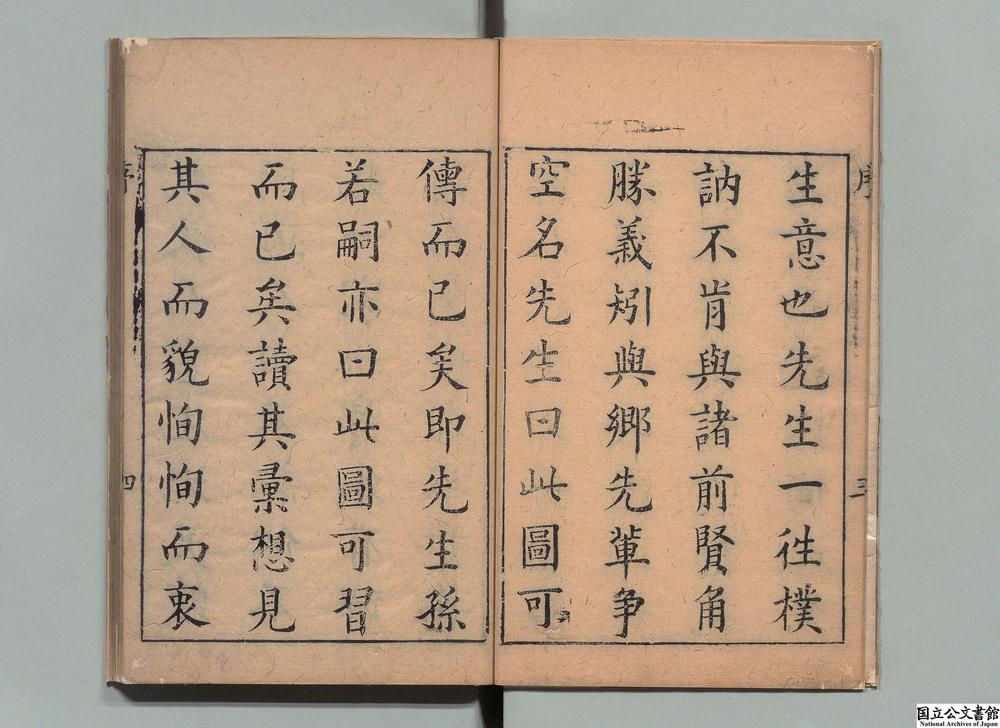 序
三
生意也先生一徃樸
訥不肯與諸前賢角
勝義矧與鄉先軰争
空名先生曰此圖可
傳而已矣即先生孫
若嗣亦曰此圖可習
而已矣讀其彙想見
其人而貌恂恂而衷
序
四
国立公文書館
National Archives of Japan